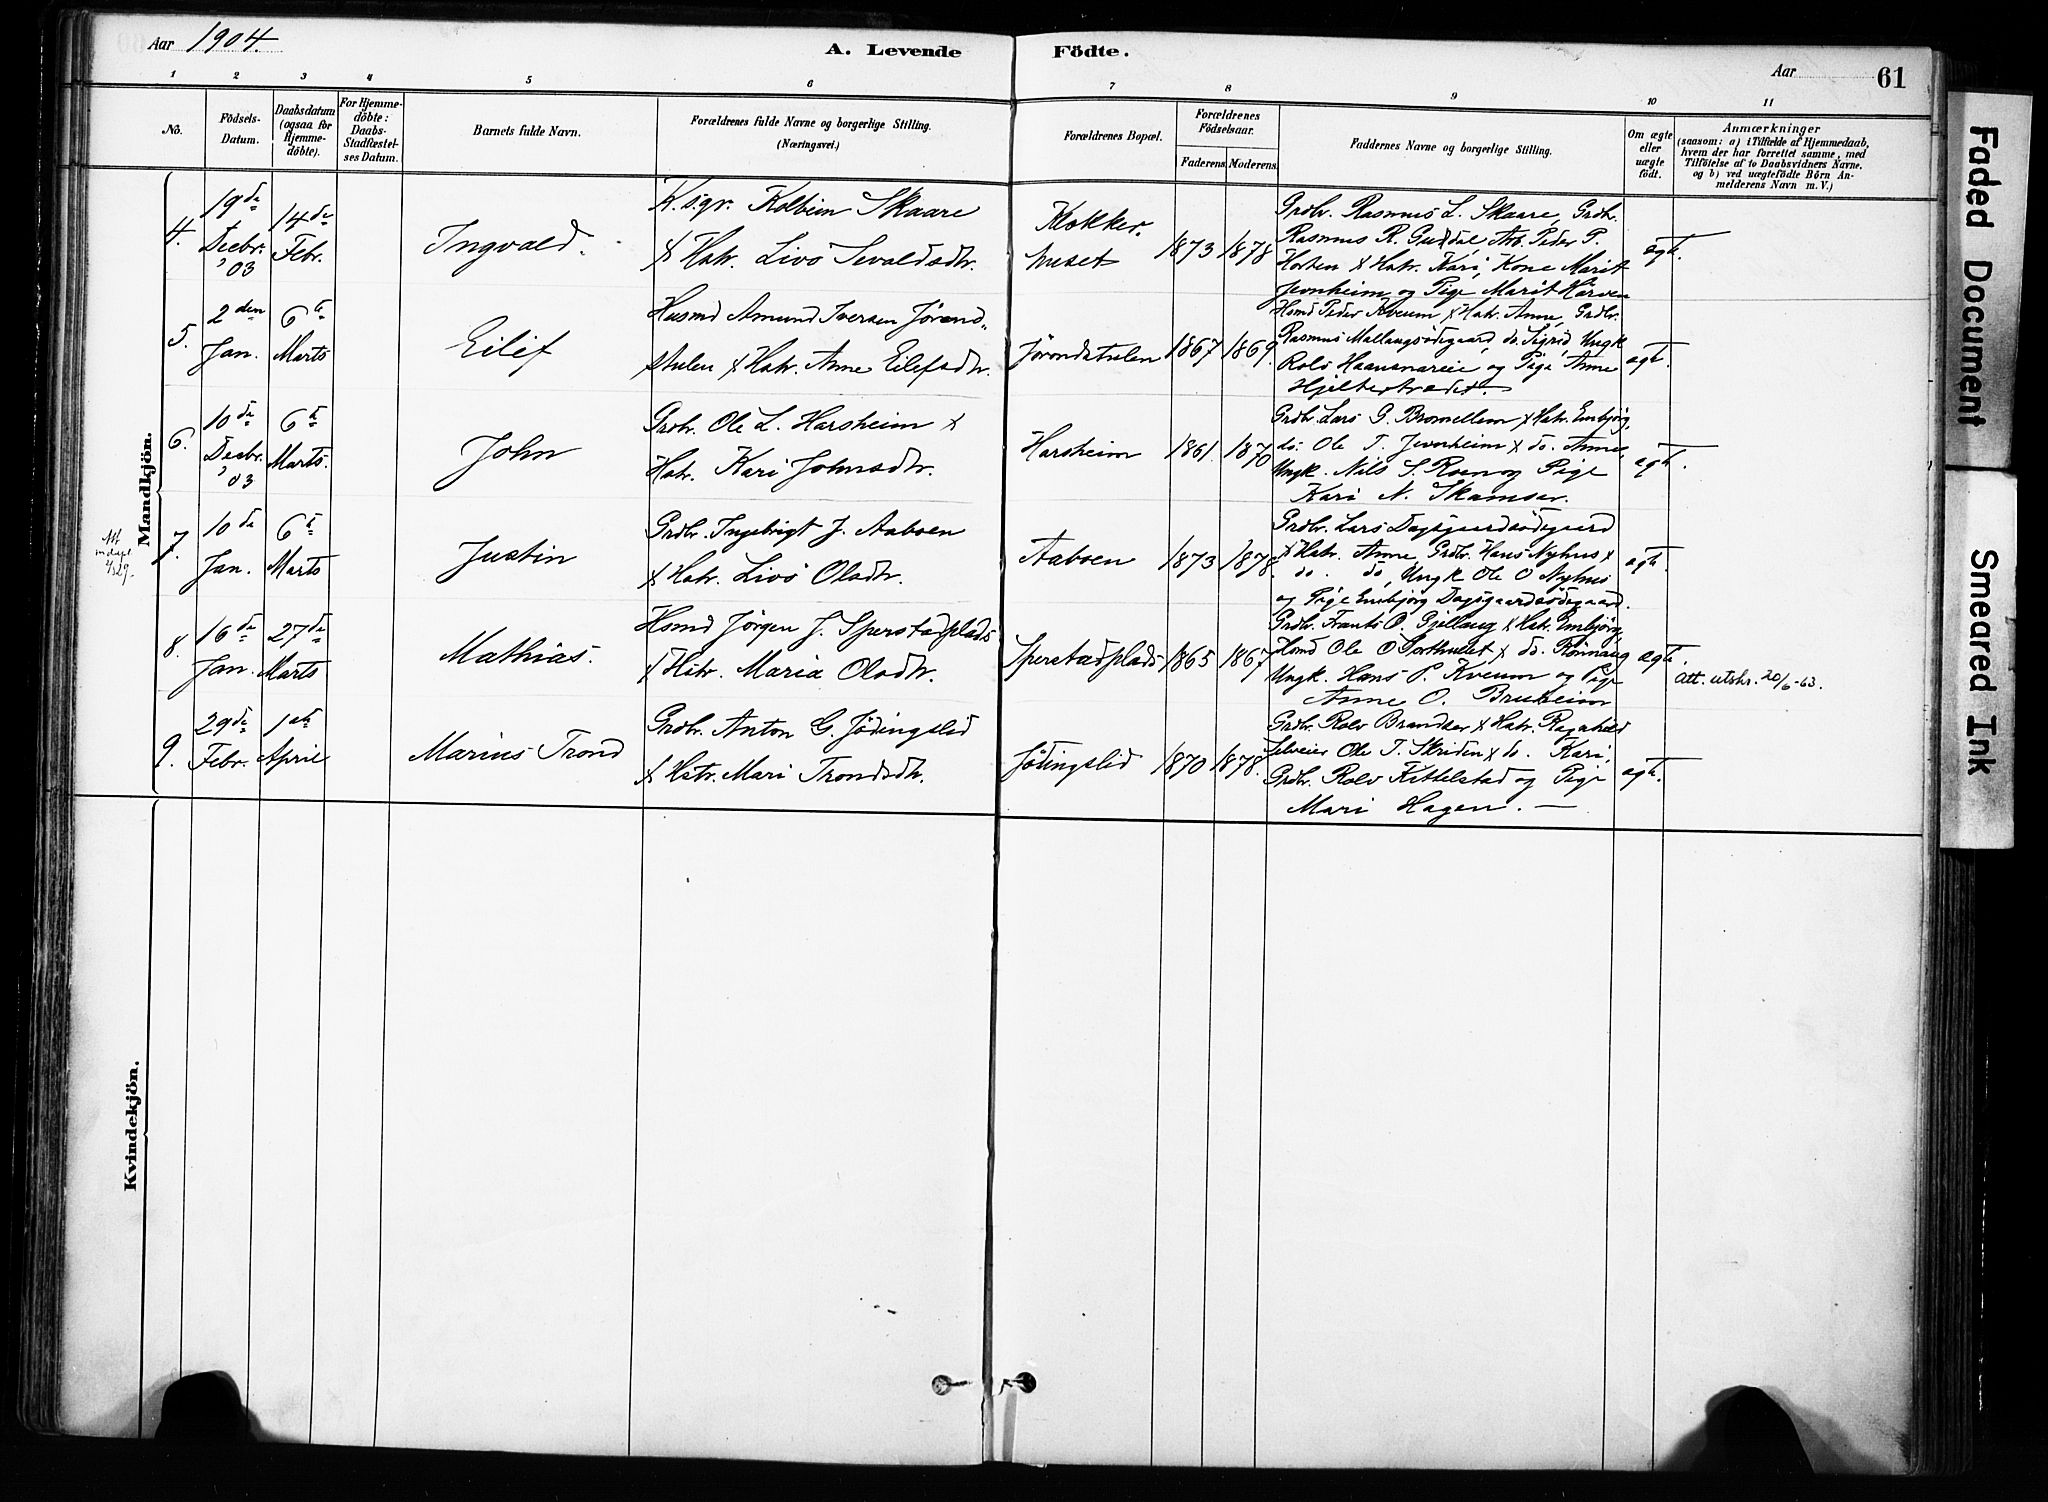 Aar 1904.
A. Levende Födte.
Aar
61
1 2 3 4 5 6 7 8 9 10 11
No.
Födsels-
Datum.
Daabsdatum
(ogsaa for
Hjemme-
döbte).
For Hjemme-
döbte:
Daabs-
Stadfæstel-
ses Datum.
Barnets fulde Navn.
Forældrenes fulde Navne og borgerlige Stilling.
(Næringsvei.)
Forældrenes Bopæl.
Forældrenes
Födselsaar.
Faderens. Moderens.
Faddernes Navne og borgerlige Stilling.
Om ægte
eller
uægte
födt.
Anmærkninger
(saasom: a) i Tilfælde af Hjemmedaab,
hvem der har forrettet samme, med
Tilföielse af to Daabsvidners Navne.
og b) ved uægtefödte Börn An-
melderens Navn m. V.)
Mandkjön.
4.
19de
Decbr.
'03
14de
Febr.
Ingvald.
K.sgr. Kolbein Skaare
& Hstr. Livö Sevaldsdtr.
Klokker-
huset
1873 1878
Grdbr. Rasmus L. Skaare, Grdbr.
Rasmus R. Guddal, Arb. Peder P.
& Hstr. Kari, Kone Marit
Jevnheim og Pige Marit Harven
ægte.
5.
2den
Jan.
6te
Marts
Eilef
Husmd Amund Iversen Jörand-
stulen & Hstr. Anne Eilefsdtr.
Jörondstulen
1867 1869.
Hsmd Peder Kveum & Hstr. Anne, Grdbr.
Rasmus Mallangsödegaard, do. Sigrid Ungk
Rolv og Pige Anne
ægte.
6.
10de
Decbr.
'03
6te
Marts.
John
Grdbr. Ole L. Harsheim &
Hstr. Kari Johnsdtr.
Harsheim
1861. 1870
Grdbr. Lars G. Bromellem & Hstr. Embjørg,
do. Ole T. Jevnheim & do. Anne,
Ungk. Nils S. Roen og Pige
Kari N. Skamsar.
ægte.
7.
10de
Jan.
6te
Marts
Justin
Grdbr. Ingebrigt J. Aaboen
& Hstr. Livö Olsdtr.
Aaboen
1873 1878.
Grdbr. Lars Dagsgaardsödegaard
& Hstr. Anne, Grdbr. Hans Nyhus &
do. do, Ungk Ole O Nyhus
og Pige Embjørg Dagsgaardsödegaard.
ægte.
8.
16de
Jan.
27de
Marts
Mathias.
Hsmd Jørgen J. Sperstadplads
& Hstr. Maria Olsdtr.
Sperstadplads
1865 1867
Grdbr. Frants O. Gjellaug & Hstr. Embjørg,
Hsmd Ole O & do. Rönnaug
Ungk. Hans P. Kveum og Pige
Anne O. Bruheim
ægte.
Att. utskr. 20/6-63.
9.
29de
Febr.
1ste
April
Marius Trond
Grdbr. Anton G. Jödingslid
& Hstr. Mari Trondsdtr.
Jötingslid
1870 1878.
Grdbr. Rolv Brandsar & Hstr. Ragnhild
Selveier Ole T. Skriden & do. Kari,
Grdbr. Rolv Kittelstad og Pige
Mari Hagen.
ægte.
Kvindekjön.
Faded Document
Smeared Ink